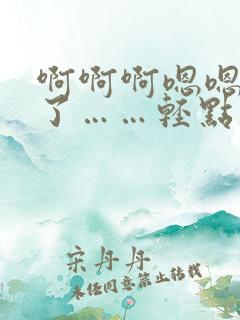 啊啊啊嗯嗯
了……轻點
宋丹丹
未经同意禁止转载